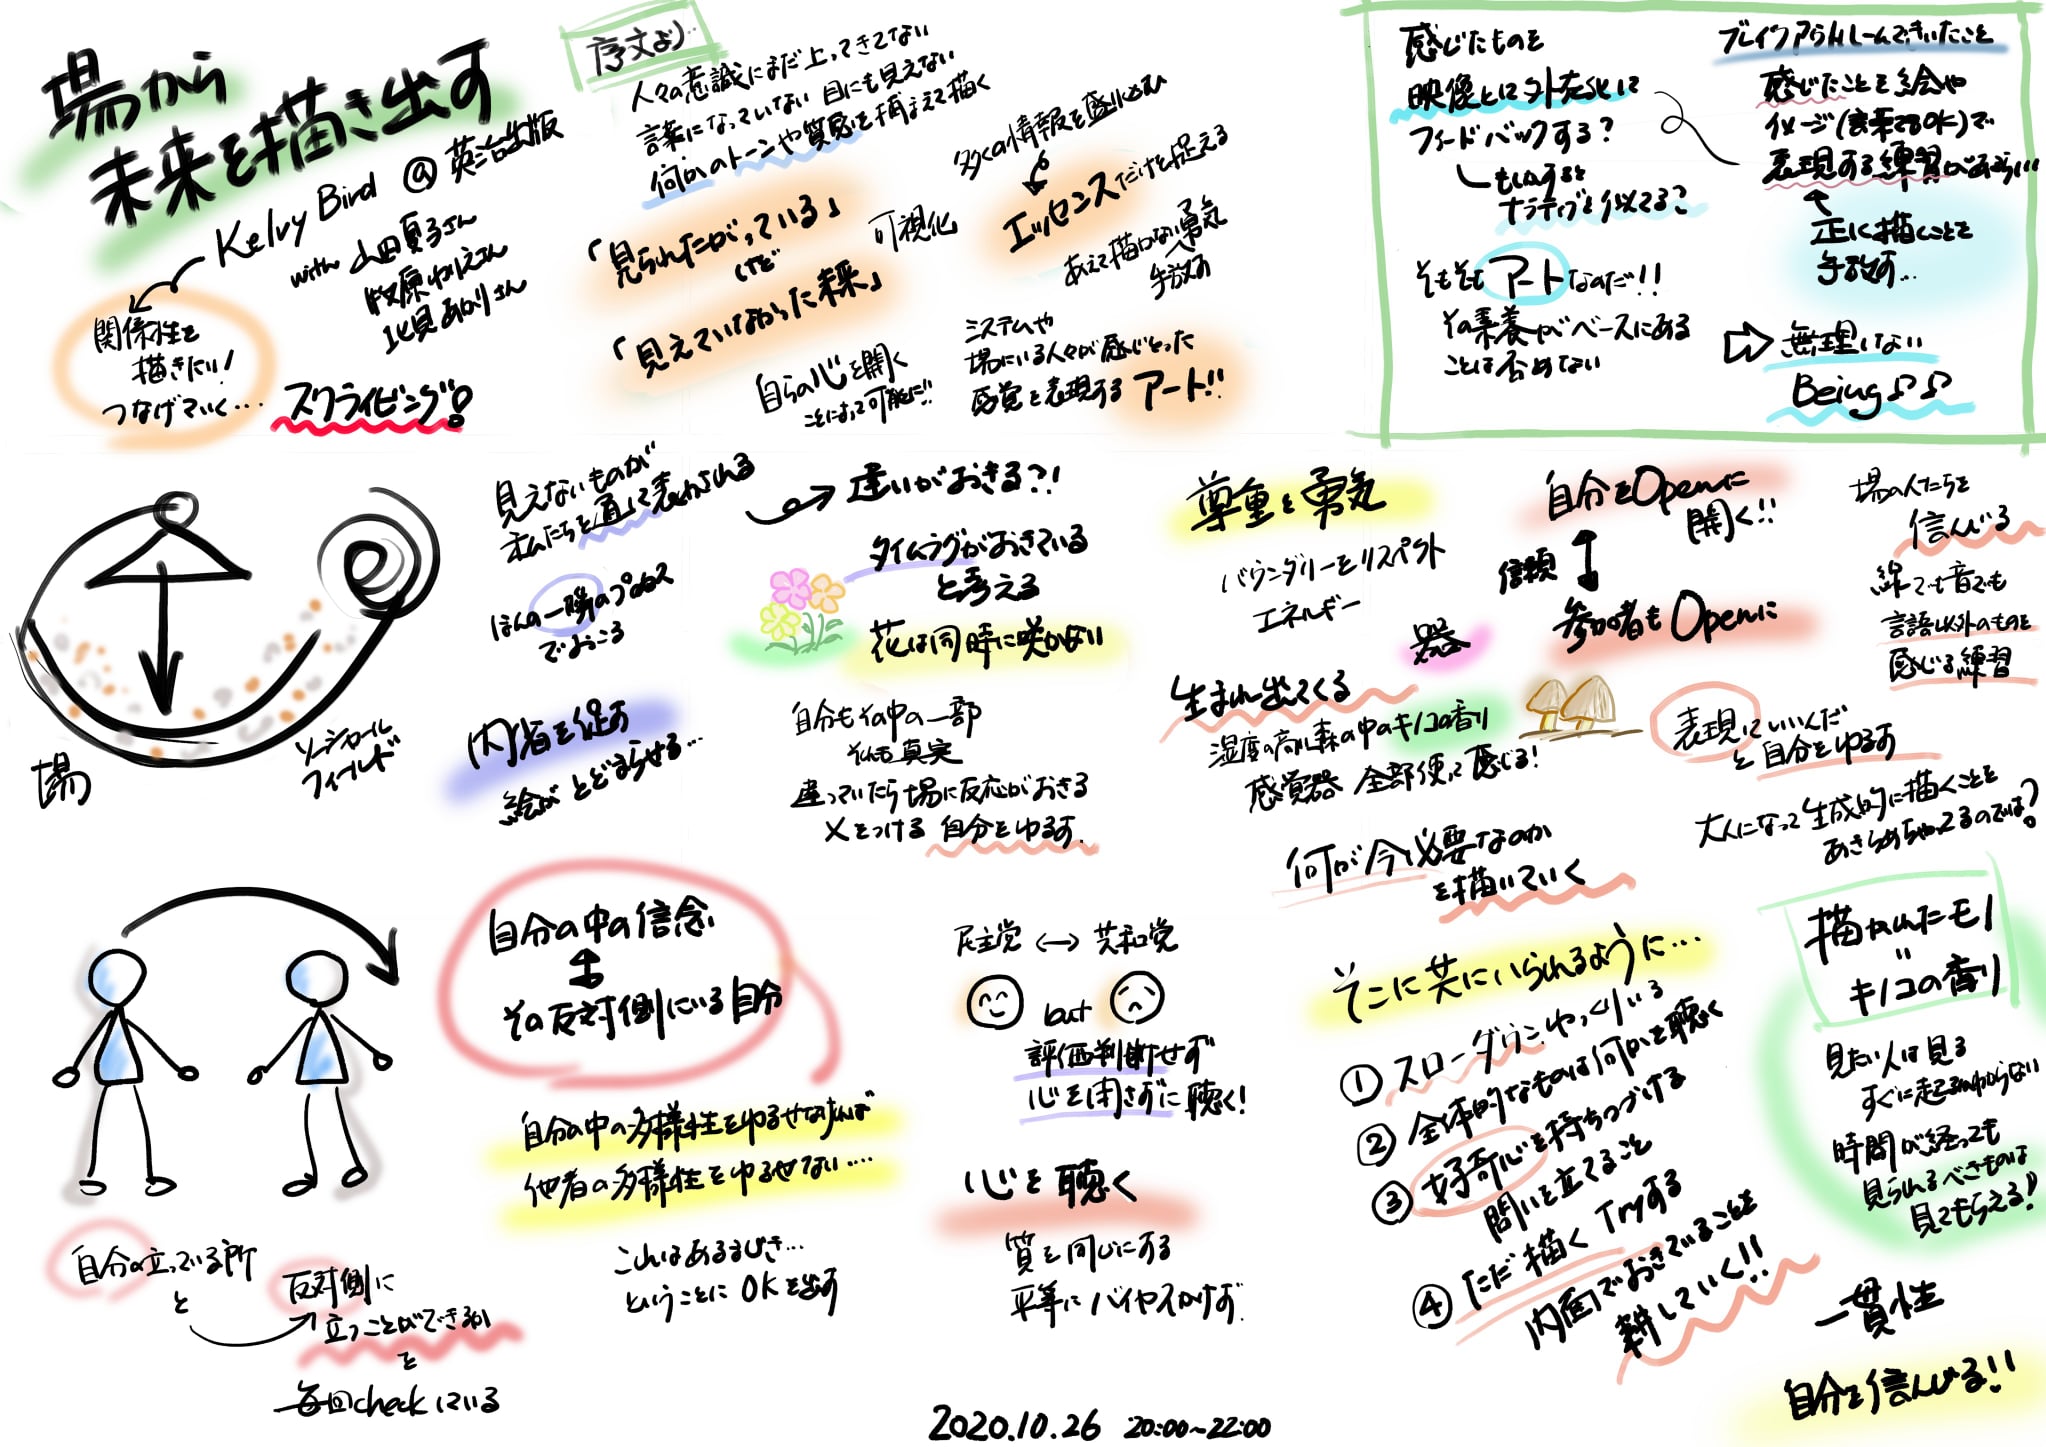 場から
未来を描き出す
Kelvy Bird @ 英治出版
with 山田夏子さん
牧原ゆりえさん
北見あかりさん
関係性を
描きたい!
つなげていく…
スクライビング!
序文より…
人々の意識にまだ上ってきてない
言葉になっていない 目にも見えない
何かのトーンや質感を捕まえて描く
「見られたがっている」
けど
「見えていなかった未来」
可視化
自らの心を開く
ことによって可能に!!
多くの情報を盛り込む
エッセンスだけを捉える
あえて描かない勇気
手放す
システムや
場にいる人々が感じとった
感覚を表現する アート!!
感じたものを
映像として外在化して
フィードバックする?
もしかすると
ナラティブと似てる?
そもそも アート なのだ!!
その素養がベースにある
ことは否めない
ブレイクアウトルームできいたこと
感じたことを絵や
イメージ(言葉でもOK)で
表現する練習
正しく描くことを
手放す…
無理しない
Being♪♪
場
ソーシャル
フィールド
見えないものが
私たちを通して表わされる
ほんの一瞬のプロセス
でおこる
内省を促す
絵が とどまらせる…
違いがおきる?!
タイムラグがおきている
と考える
花は同時に咲かない
自分もその中の一部
それも真実
違っていたら場に反応がおきる
×をつける 自分をゆるす.
尊重と勇気
バウンダリーをリスペクト
エネルギー
器
生まれ出てくる
湿度の高い森の中のキノコの香り
感覚器 全部使って感じる!
何が今必要なのか
を描いていく
自分をOpenに
開く!!
信頼
参加者もOpenに
場の人たちを
信んじる
線でも音でも
言語以外のものを
感じる練習
表現していいんだ
と自分をゆるす
大人になって生成的に描くことを
あきらめちゃってるのでは?
自分の立っている所
と
反対側に
立つことができるか
を
毎回checkしている
自分の中の信念
その反対側にいる自分
自分の中の多様性をゆるせなければ
他者の多様性をゆるせない….
これはあるまじき…
ということに OKを出す
民主党 ↔ 共和党
but
評価判断せず
心を閉さずに聴く!
心を聴く
質を同じにする
平等に バイヤスかけず.
そこに共にいられるように…
① スローダウン ゆっくりいる
② 全体的なものは何かを聴く
③ 好奇心を持ちつづける
問いを立てること
④ ただ描く Tryする
内面でおきていることを
耕していく!!
描かれたモノ
〃
キノコの香り
見たい人は見る
すぐに起るかわからない
時間が経っても
見られるべきものは
見てもらえる!
一貫性
自分を信んじる!!
2020.10.26 20:00~22:00